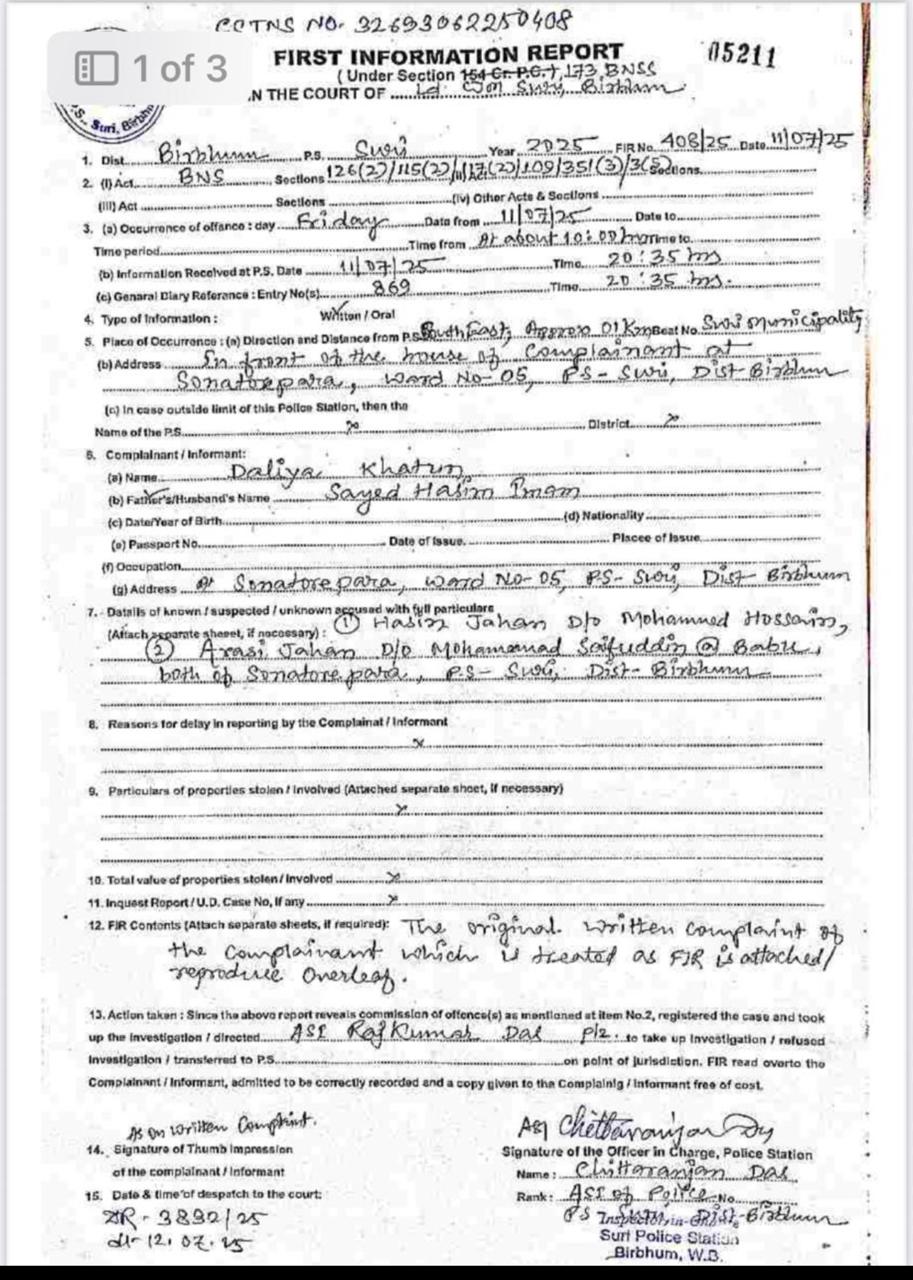 CCTNS NO. 32693062250408
FIRST INFORMATION REPORT
05211
1 of 3
(Under Section 154 Cr. P.C.), 173, BNSS
IN THE COURT OF Ld. CJM Suri, Birbhum
Suri, Birbh
1. Dist. Birbhum P.S. Suri Year 2025 FIR No. 408/25 Date 11/07/25
2. (I) Act BNS Sections 126(2)/115(2)/117(2)/109/351(3)/3(5) Sections
(III) Act Sections (iv) Other Acts & Sections
3. (a) Occurrence of offance : day Friday Data from 11/07/25 Date to
Time period Time from At about 10:00 hrs Time to
(b) Information Received at P.S. Date 11/07/25 Time 20:35 hrs
(c) General Diary Referance : Entry No(s) 869 Time 20:35 hrs.
4. Type of Information : Written / Oral
5. Place of Occurrence : (a) Direction and Distance from P.S. South East, Approx 01 Km Beat No. Suri Municipality
(b) Address In front of the house of complainant at
Sonatorepara, ward No-05, PS- Suri, Dist-Birbhum
(c) In case outside limit of this Police Station, then the
Name of the P.S. x District x
6. Complainant / Informant:
(a) Name Daliya Khatun
(b) Father's/Husband's Name Sayed Hasim Imam
(c) Date/Year of Birth (d) Nationality
(e) Passport No. Date of Issue. Placee of Issue
(f) Ooupation
(g) Address at Sonatorepara, ward No-05, P.S- Suri, Dist- Birbhum
7. Datails of known / suspected / unknown accused with full particulars
(Attach separate sheeet, if necessary) : (1) Hasin Jahan D/o Mohammed Hossain,
(2) Arasi Jahan D/o Mohammad Saifuddin @ Babu,
both of Sonatorepara, P.S- Suri, Dist- Birbhum
8. Reasons for delay in reporting by the Complainat / Informant
x
9. Particulars of properties stolen / Involved (Attached separate sheet, if necessary)
x
10. Total value of properties stolen / involved x
11. Inquest Report / U.D. Case No, if any x
12. FIR Contents (Attach separate sheets, if required): The original written complaint of
the complainant which is treated as FIR is attached/
reproduce overleaf.
13. Action taken : Since the above report reveals commission of offence(s) as mentioned at item No.2, registered the case and took
up the investigation / directed ASI Raj Kumar Das to take up Investigation / refused
Investigation / transferred to P.S. on point of jurisdiction. FIR read overto the
Complainant / Informant, admitted to be correctly recorded and a copy given to the Complainig / Informant free of cost.
As on written Complaint.
ASI Chittaranjan Das
14. Signature of Thumb Impression
of the complainant / Informant
Signature of the Officer in Charge, Police Station
Name : Chittaranjan Das
15. Date & time of despatch to the court:
Rank : ASI of Police No.
PS Suri, Dist-Birbhum
Inspector-in-Charge
Suri Police Station
Birbhum, W.B.
dt-12.07.25